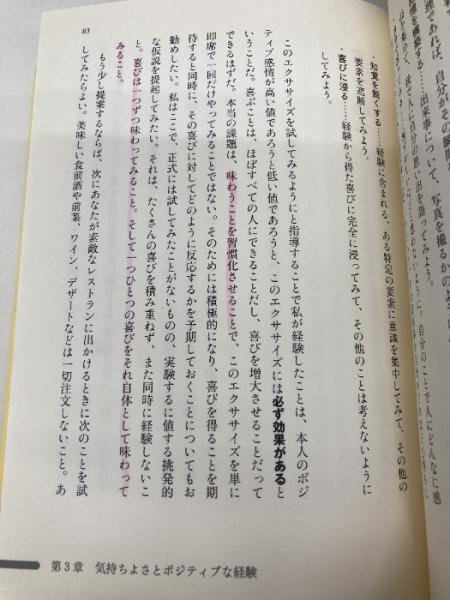 ・知覚を鋭くする……経験に含まれる、ある特定の要素に意識を集中してみて、その他の
要素を遮断してみよう。
・喜びに浸る……経験から得た喜びに完全に浸ってみて、その他のことは考えないように
してみよう。
このエクササイズを試してみるようにと指導することで私が経験したことは、本人のポジ
ティブ感情が高い値であろうと低い値であろうと、このエクササイズには必ず効果があると
いうことだ。喜ぶことは、ほぼすべての人にできることだし、喜びを増大させることだって
できるはずだ。本当の課題は、味わうことを習慣化させることで、このエクササイズを単に
即席で一回だけやってみることではない。そのためには積極的になり、喜びを得ることを期
待すると同時に、その喜びに対してどのように反応するかを予期しておくことについてもお
勧めしたい。私はここで、正式には試してみたことがないものの、実験するに値する挑発的
な仮説を提起してみたい。それは、たくさんの喜びを積み重ねず、また同時に経験しないこ
と。喜びは一つずつ味わってみること。そして一つひとつの喜びをそれ自体として味わって
みること。
もう少し提案するならば、次にあなたが素敵なレストランに出かけるときに次のことを試
してみたらよい。美味しい食前酒や前菜、ワイン、デザートなどは一切注文しないこと。あ
83
第3章 気持ちよさとポジティブな経験